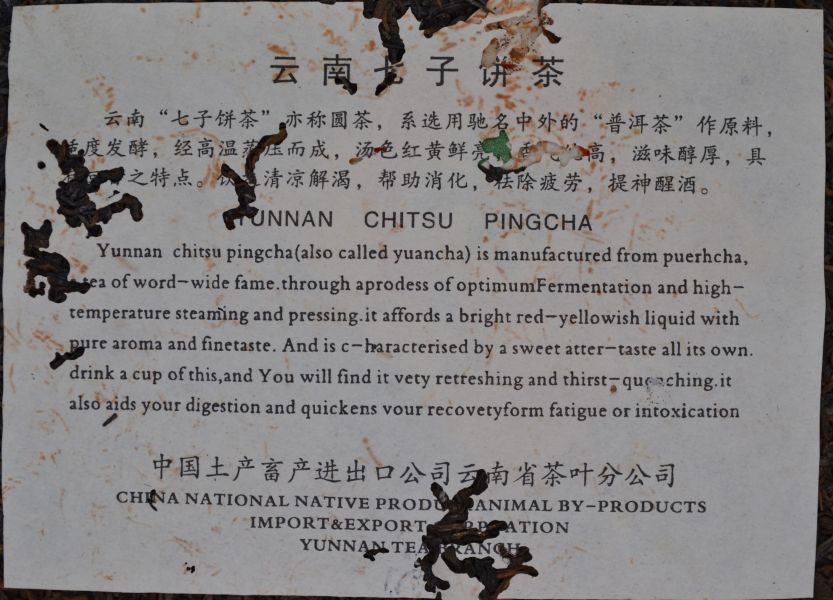 云南七子饼茶
云南“七子饼茶”亦称圆茶，系选用驰名中外的“普洱茶”作原料，
适度发酵，经高温蒸压而成，汤色红黄鲜亮，香高，滋味醇厚，具
之特点。清凉解渴，帮助消化，祛除疲劳，提神醒酒。
YUNNAN CHITSU PINGCHA
Yunnan chitsu pingcha(also called yuancha) is manufactured from puerhcha,
tea of word-wide fame.through aprodess of optimumFermentation and high-
temperature steaming and pressing.it affords a bright red-yellowish liquid with
pure aroma and finetaste. And is c-haracterised by a sweet atter-taste all its own.
drink a cup of this,and You will find it vety retreshing and thirst-quenching.it
also aids your digestion and quickens vour recovetyform fatigue or intoxication
中国土产畜产进出口公司云南省茶叶分公司
CHINA NATIONAL NATIVE PRODU ANIMAL BY-PRODUCTS
IMPORT&EXPORT RPORATION
YUNNAN TEA BRANCH